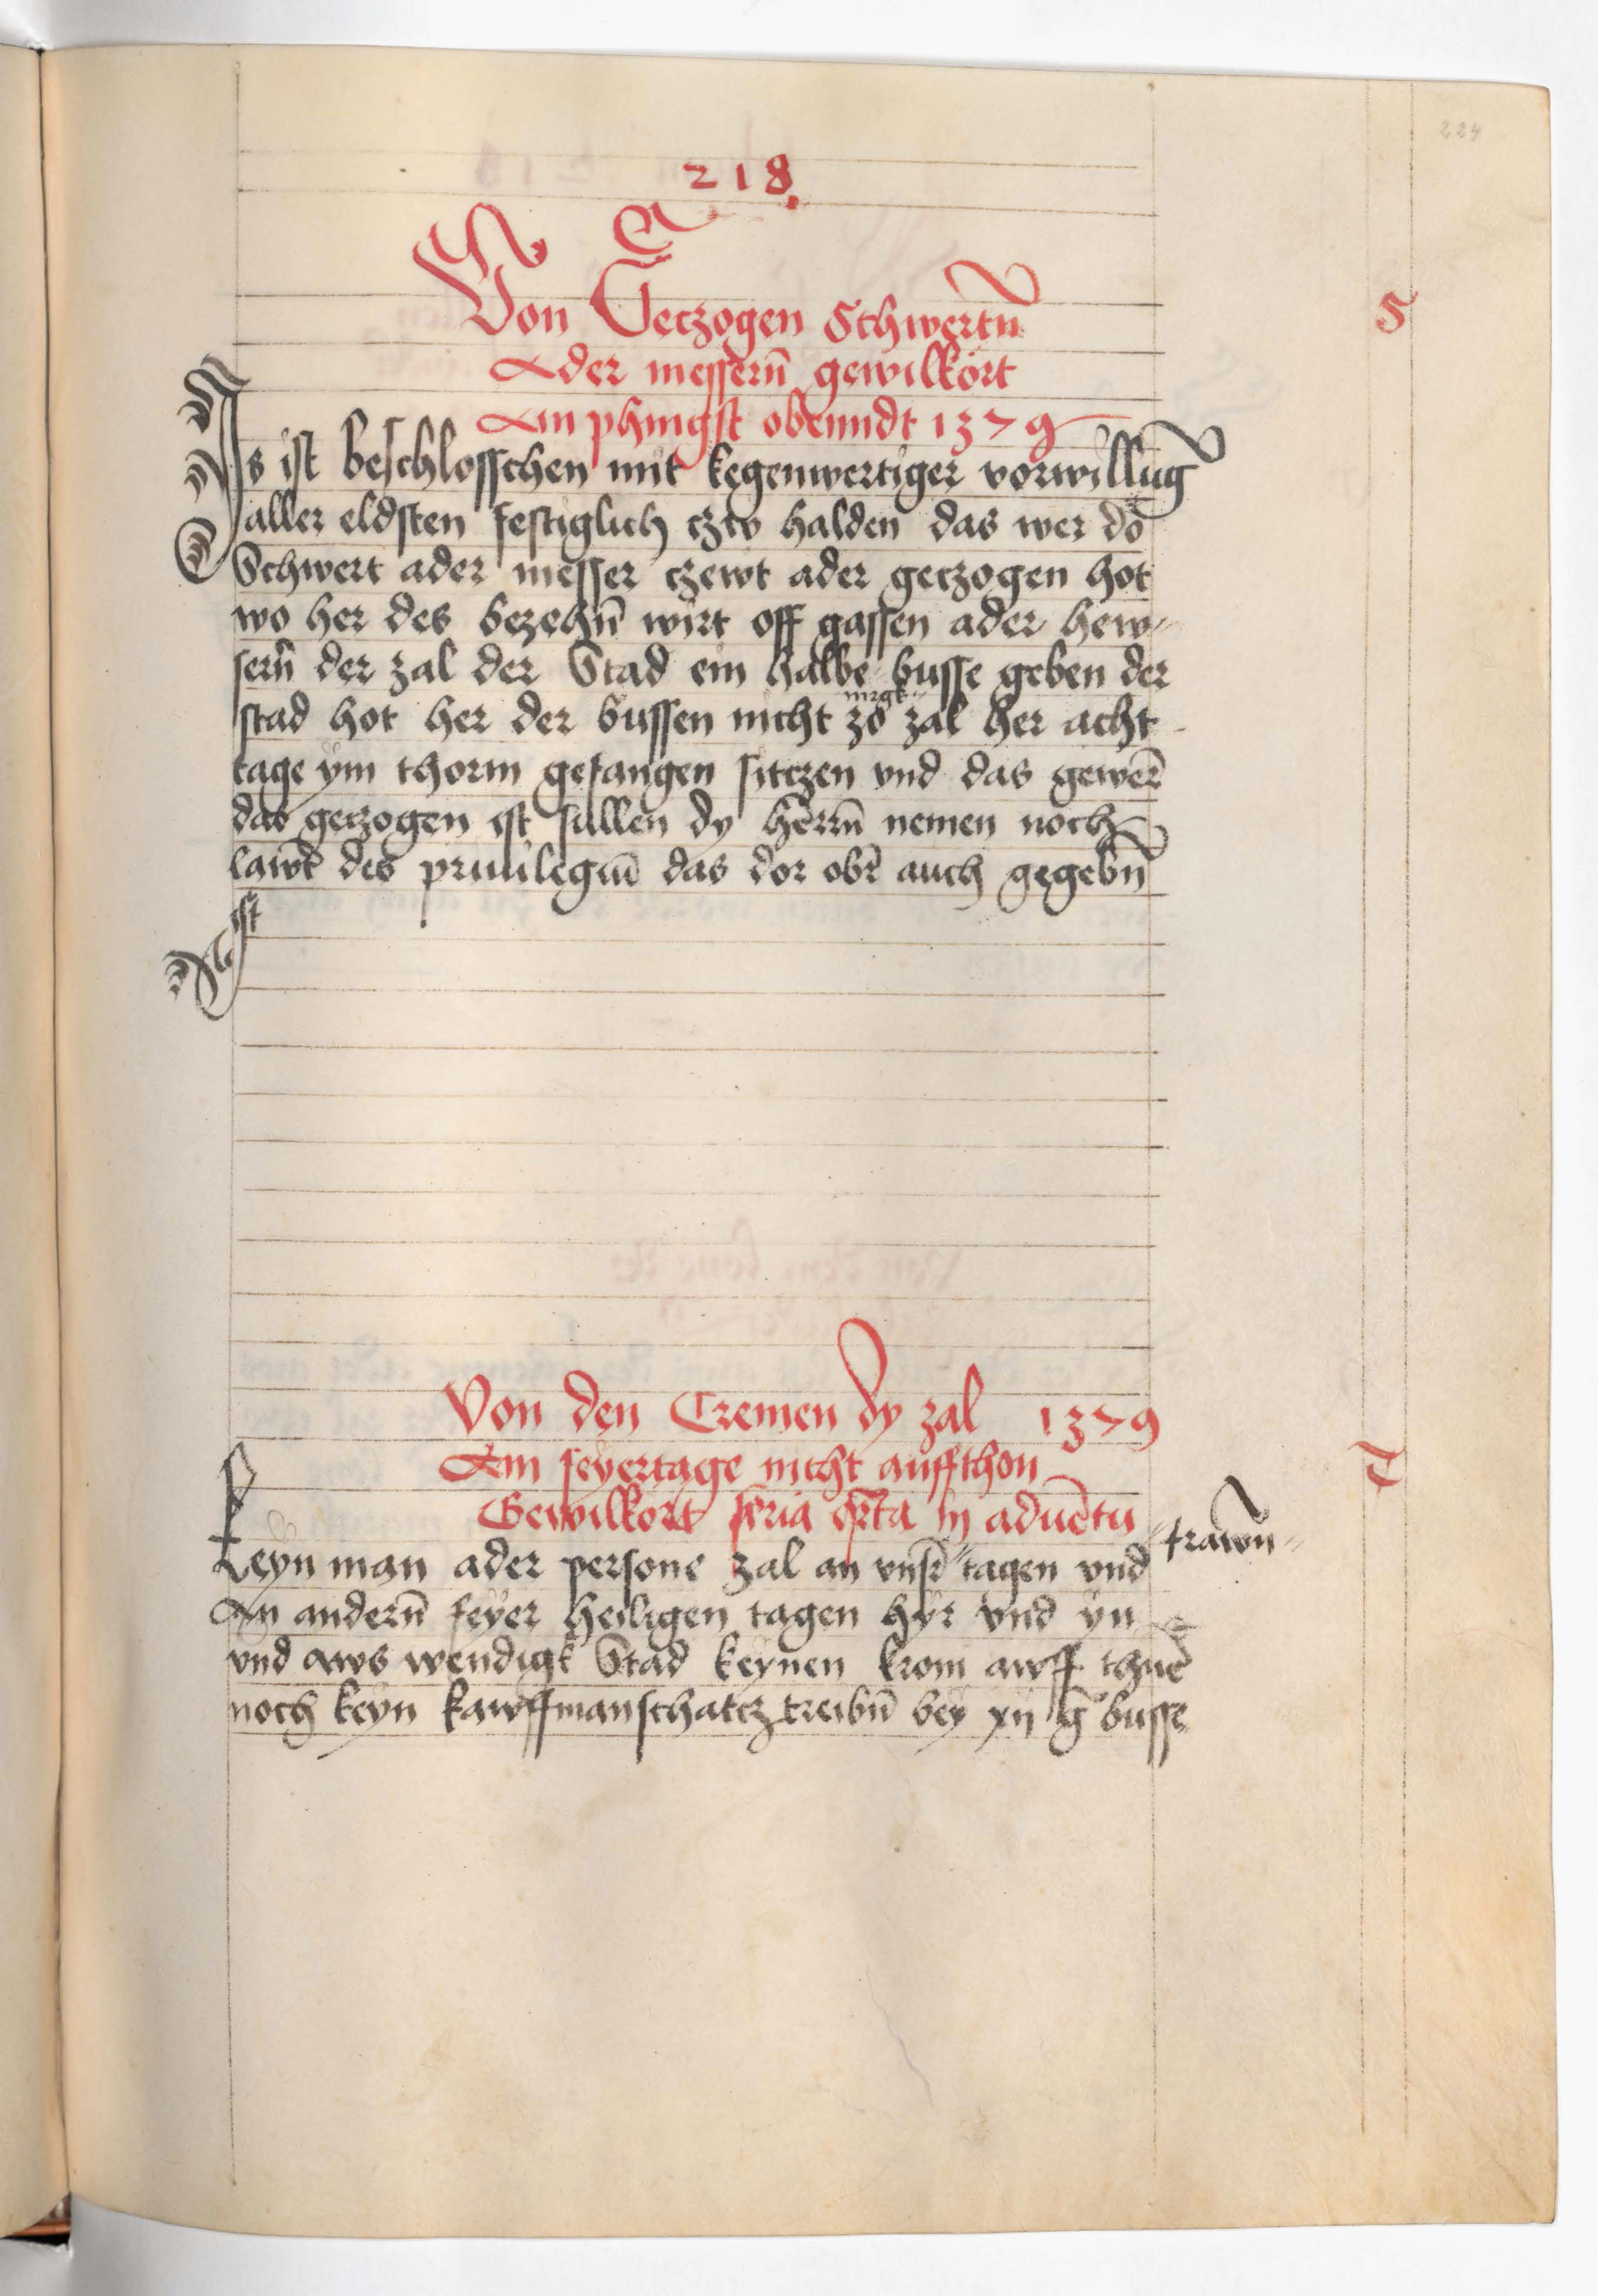 224
218
Von Geczogen Schwertn̄
Ader messern̄ gewilkort
Am phingst obenndt 1379
S
Is ist beschlosschen mit kegenwertiger vorwillūg
aller eldsten festiglich czw halden das wer do
Schwert ader messer czewt ader geczogen hot
wo her des bezehn̄ wirt off gassen ader hew-
sern̄ der zal der Stad ein halbe busse geben der
stad hot her der bussen nicht zo zal her acht
tage ym thorm gefangen sitczen vnd das gewer̄
das geczogen ist sullen dy herrn̄ nemen noch
lawt des priuilegiū das dor obir̄ auch gegebn̄
ist
Von den Cremen dy zal 1379
Am feyertage nicht auffthon
T
Gewilkort feria qr̄ta in aduētu
Keyn man ader persone zal an vnsr̄ "tagen vnd "frawn̄"
An andern̄ feyer heiligen tagen hyr vnd yn
vnd aws wendigk Stad keynen krom awff thuē
noch keyn kawffmanschatcz treibn̄ bey xij ḡ busse